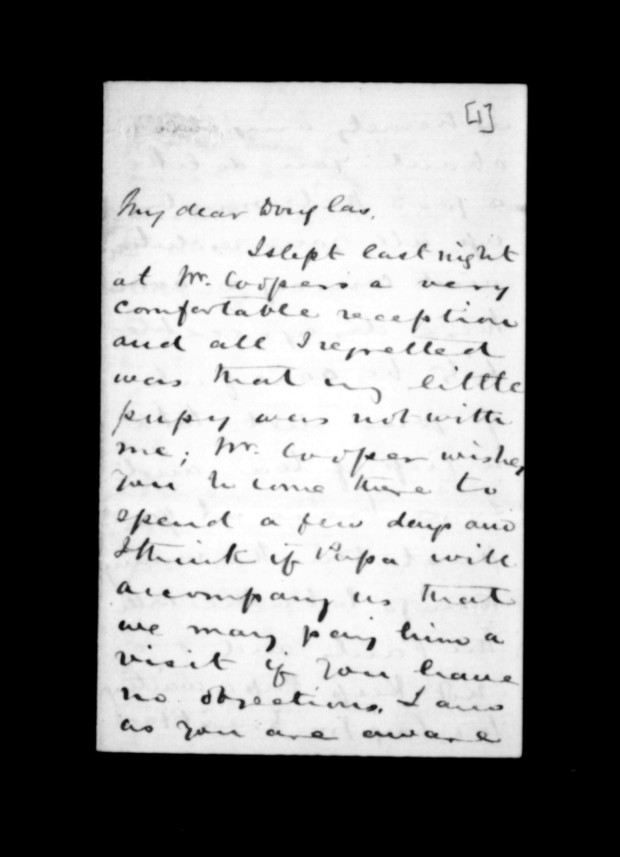 [1]
My dear Douglas,
I slept last night
at Mr. Coopers a very
comfortable reception
and all I regretted
was that my little
pupsy was not with
me; Mr. Cooper wishes
you to come there to
spend a few days and
I think if Papa will
accompany us that
we may pay him a
visit if you have
no objections. I am
as you are aware